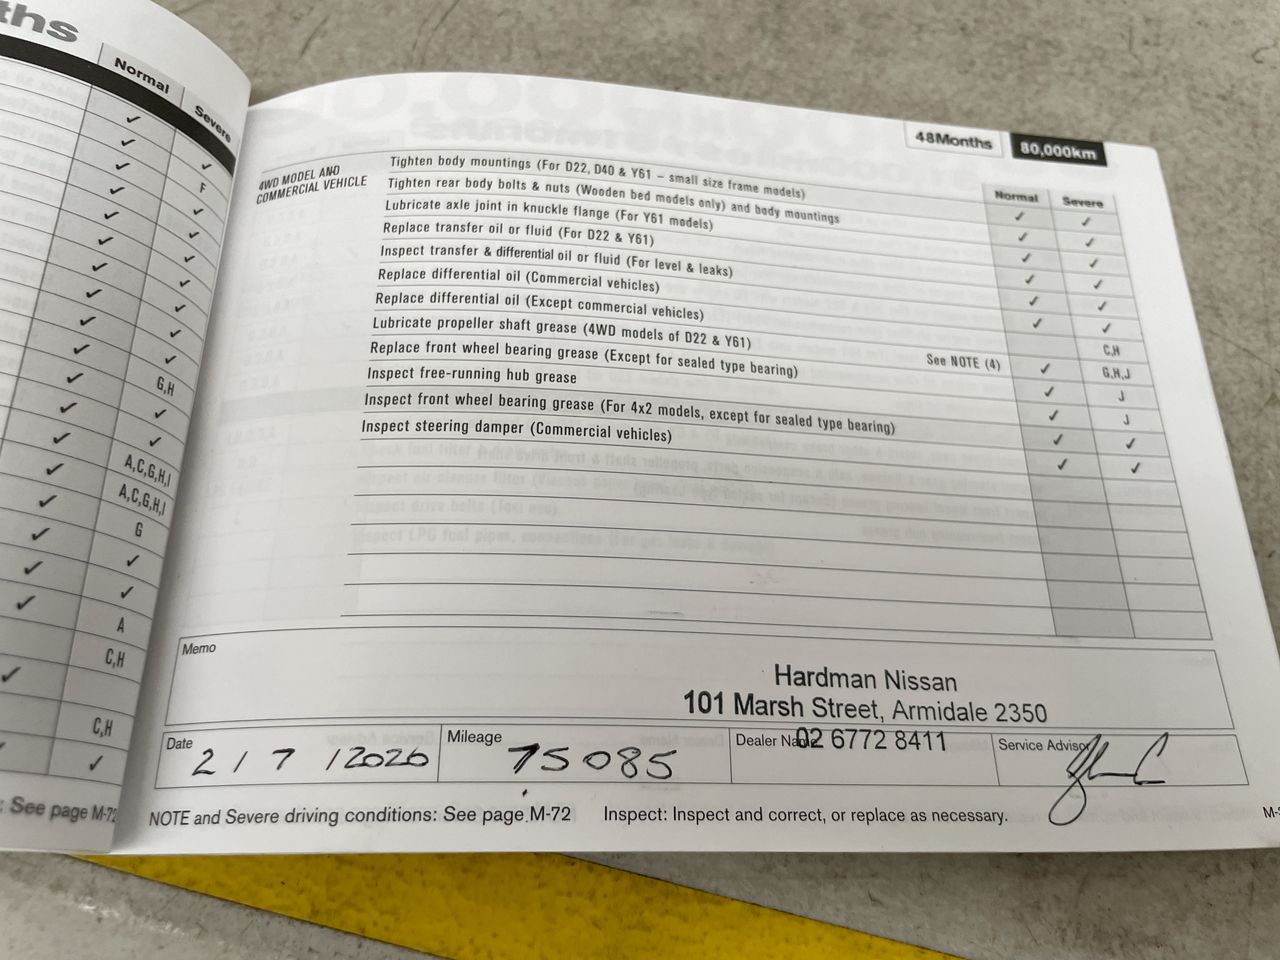 ths
Normal
Severe
F
G,H
A,C,G,H,I
A,C,G,H,I
G
A
C,H
C,H
: See page M-72
48Months
80,000km
Normal
Severe
4WD MODEL AND
COMMERCIAL VEHICLE
Tighten body mountings (For D22, D40 & Y61 – small size frame models)
✓ ✓
Tighten rear body bolts & nuts (Wooden bed models only) and body mountings
✓ ✓
Lubricate axle joint in knuckle flange (For Y61 models)
✓ ✓
Replace transfer oil or fluid (For D22 & Y61)
✓ ✓
Inspect transfer & differential oil or fluid (For level & leaks)
✓ ✓
Replace differential oil (Commercial vehicles)
✓ ✓
Replace differential oil (Except commercial vehicles)
C,H
Lubricate propeller shaft grease (4WD models of D22 & Y61) See NOTE (4)
✓ G,H,J
Replace front wheel bearing grease (Except for sealed type bearing)
✓ J
Inspect free-running hub grease
✓ J
Inspect front wheel bearing grease (For 4x2 models, except for sealed type bearing)
✓ ✓
Inspect steering damper (Commercial vehicles)
✓ ✓
Memo
Hardman Nissan
101 Marsh Street, Armidale 2350
02 6772 8411
Date
2 / 7 / 2020
Mileage
75085
Dealer
Service Advisor
NOTE and Severe driving conditions: See page M-72
Inspect: Inspect and correct, or replace as necessary.